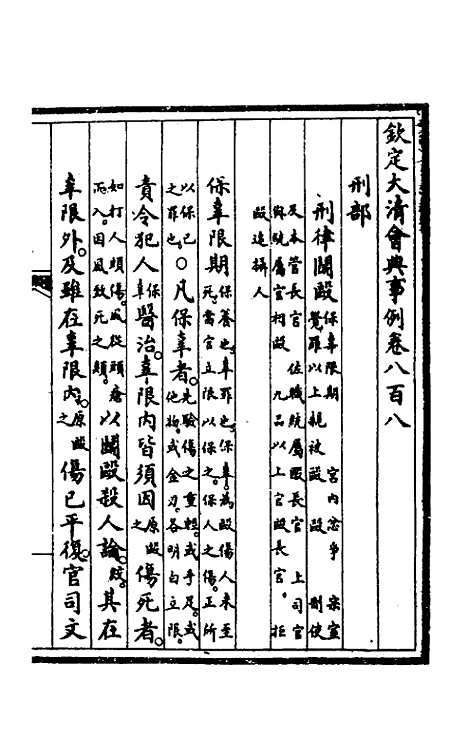 欽定大清會典事例卷八百八
刑部
刑律鬬毆 保辜限期 宮內忿爭 宗室
覺羅以上親被毆 毆制使
及本管長官 佐職統屬毆長官 上司官
與統屬官相毆 九品以上官毆長官 拒
毆追攝人
保辜限期 保養也。辜罪也。保辜。為毆傷人未至
死。當官立限以保之。保人之傷。正所
以保己
之罪也。○凡保辜者。先驗傷之重輕。或手足。或
他物。或金刃。各明白立限。
責令犯人 保辜 醫治。辜限內皆須因 原毆之 傷死者。
如打人頭傷。風從頭瘡
而入。因風致死之類。以鬬毆殺人論。絞。其在
辜限外。及雖在辜限內。原毆之 傷已平復。官司文